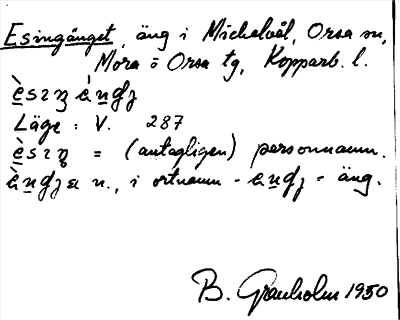 Esingänget, äng i Michelvål, Orsa sn,
Mora o Orsa tg, Kopparb. l.
Läge: V. 287
= (antagligen) personnamn.
n., i ortnamn - = äng.
B. Granholm 1950